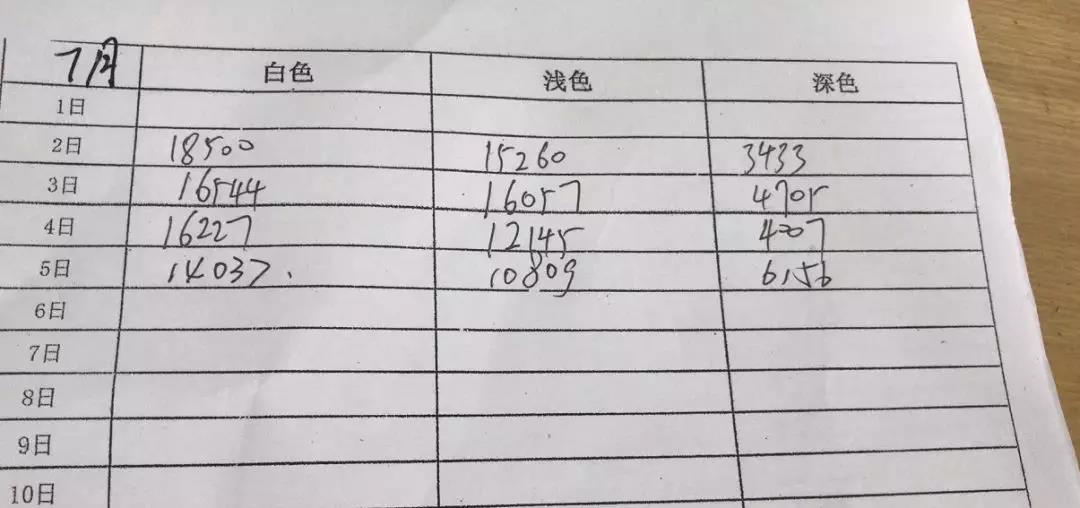 7月 白色 浅色 深色
1日
2日 18500 15260 3433
3日 16544 16057 4705
4日 16227 12145 4207
5日 14037. 10809 6156
6日
7日
8日
9日
10日